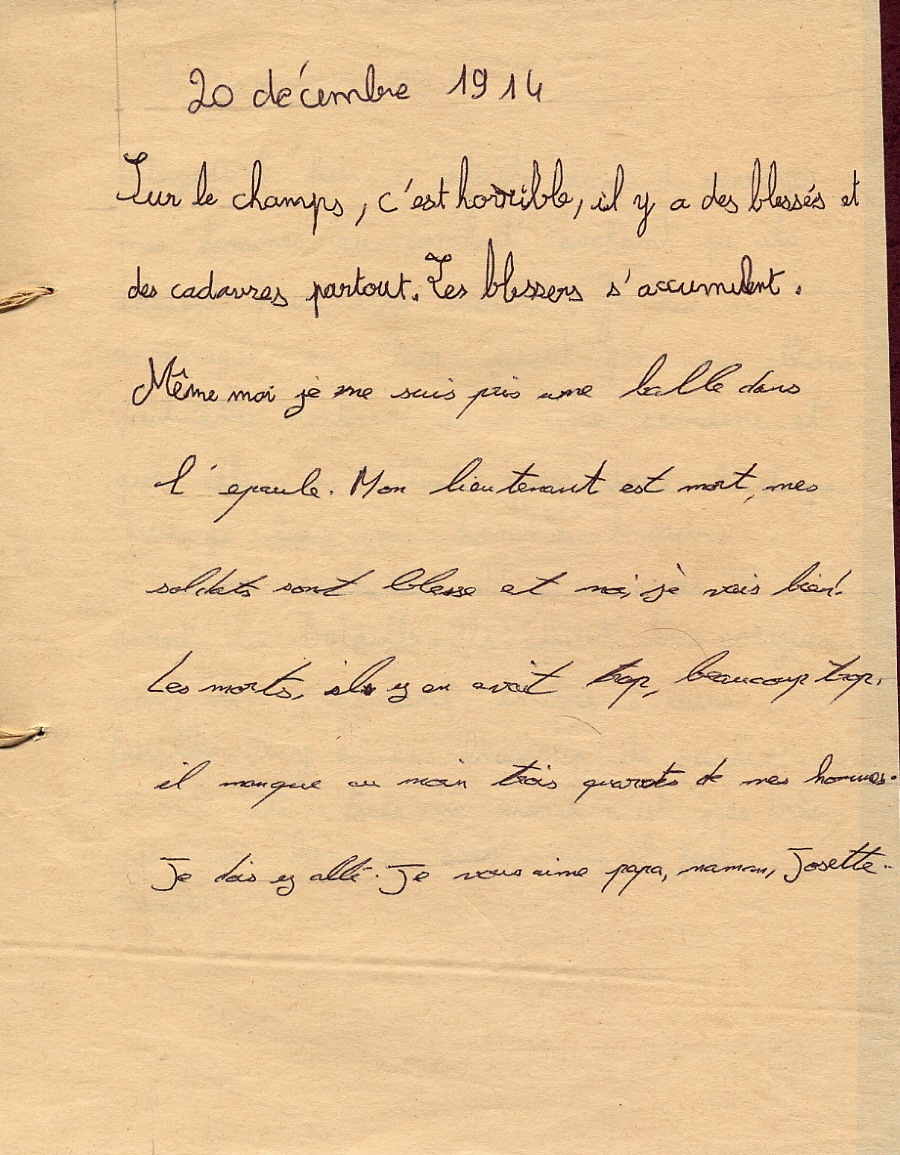 20 décembre 1914
Sur le champs, c'est horrible, il y a des blessés et
des cadavres partout. Les blessers s'accumulent.
Même moi je me suis pris une balle dans
l'epaule. Mon lieutenant est mort, mes
soldats sont blesse et moi, je vais bien!
Les morts, il y en avait trop, beaucoup trop,
il manque au moin trois quarts de mes hommes.
Je dois y allé. Je vous aime papa, maman, Josette..